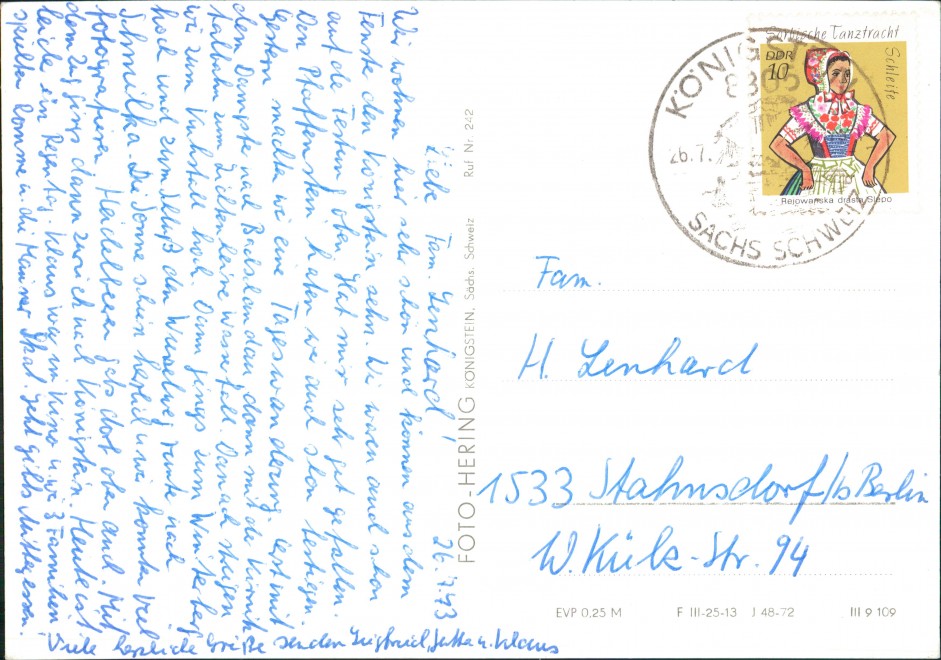 Liebe Fam. Lenhard! 26.7.73
Wir wohnen hier sehr schön und können aus dem
Fenster den Königstein sehn. Wir waren auch schon
auf der Festung oben. Hat mir sehr gut gefallen.
Den Pfaffenstein haben wir auch schon bestiegen.
Gestern machten wir eine Tageswanderung. Erst mit
dem Dampfer nach Bad Schandau dann mit der Kirnitzsch
talbahn zum Lichtenhainer Wasserfall. Danach stiegen
wir zum Kuhstall hoch. Dann gings zum Winterberg
hoch und zum Schluß den Wurzelweg runter nach
Schmilka. Die Sonne schien herrlich u. wir konnten viel
fotografieren. Heidelbeeren gabs dort oben auch. Mit
dem Zug gings dann zurück nach Königstein. Heute ist
leider ein Regentag. Klaus war im Kino u. wir 3 Familien
spielten Romme u. die Männer Skat. Jetzt gibts Mittagessen.
Viele herzliche Grüße senden Siegfried, Jutta u. Klaus
FOTO-HERING KÖNIGSTEIN, Sächs. Schweiz Ruf Nr. 242
Sorbische Tanztracht
Schleife
DDR
10
Rejowanska drasta Slepo
KÖNIGST
8305
26.7.
SÄCHS SCHWEIZ
Fam.
H. Lenhard
1533 Stahnsdorf/b Berlin
W. Külz-Str. 94
EVP 0,25 M F III-25-13 J 48-72 III 9 109